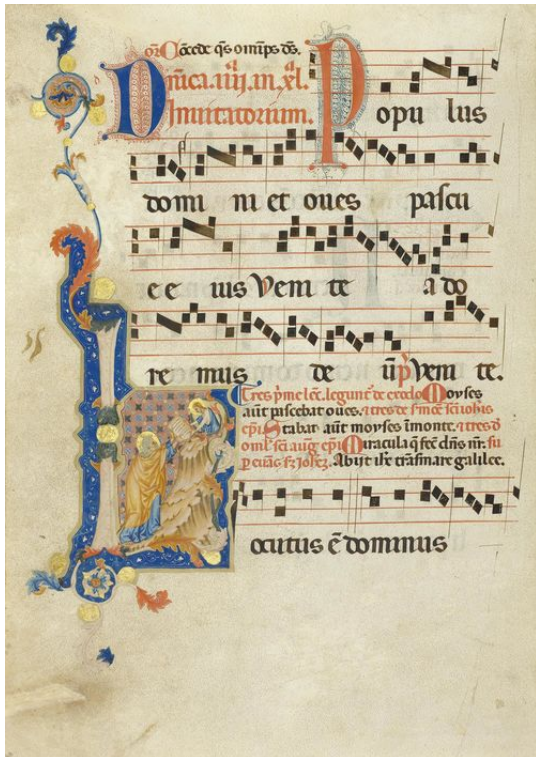 or̄ Cōcede q̄s omīps d̄s.
Dn̄ica. iiij. in. xl.
Inuitatorium. Popu lus
domi ni et oues pascu
e e ius Venı te a do
re mus de um̄ p̄s Venı te.
Tres p̄me lc̄e. legunt᷒ de exodo Moyses
aūt pascebat oues. ⁊ tres de s̄mōe sc̄i ioh̄is
ep̄i. Stabat aūt moyses ī monte. ⁊ tres d̓
oml̓. sc̄i auḡ. ep̄i Miracula q̄ fec̄ dn̄s nr̄. su
p euāg̓. s̄z ioh̄ez. Abijt ih̄c trāsmare galilee.
Locutus ē dominus